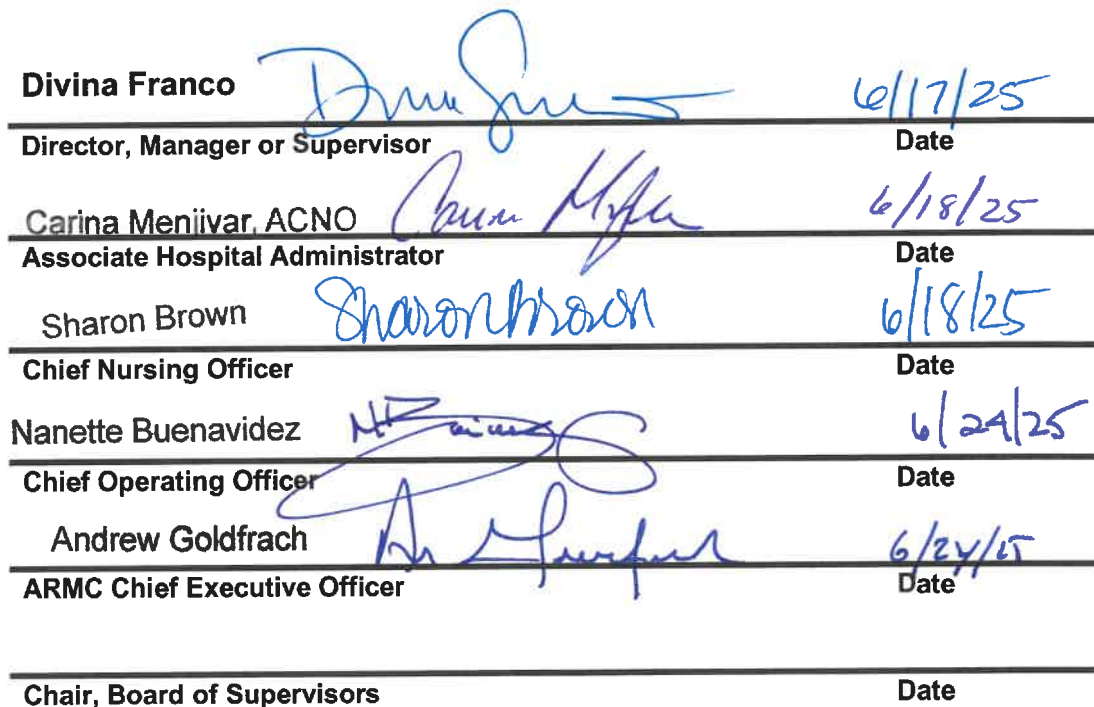 Divina Franco 6/17/25
Director, Manager or Supervisor Date
Carina Menjivar, ACNO 6/18/25
Associate Hospital Administrator Date
Sharon Brown Sharon Brown 6/18/25
Chief Nursing Officer Date
Nanette Buenavidez 6/24/25
Chief Operating Officer Date
Andrew Goldfrach 6/24/25
ARMC Chief Executive Officer Date
Chair, Board of Supervisors Date